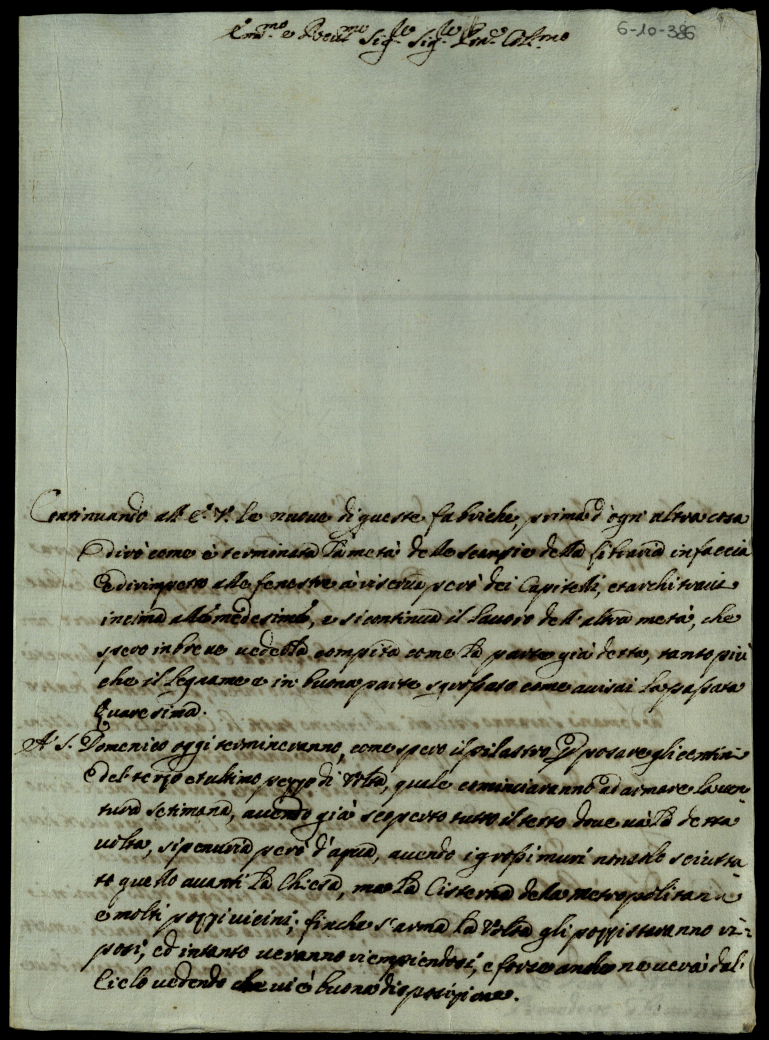 Em.mo e Rev.mo Sig.re Sig.re Pron.e Col.mo
6-10-386
Continuando all' E.V. le nuove di queste fabriche, prima d'ogni altra cosa
dirò come è terminata la metà delle scansie della libraria in faccia
e dirimpetto alle fenestre à riserva però dei Capitelli, et architravi
incima alle medesime, e si continua il lavoro dell'altra metà, che
spero in breve vederla compita come la parte già detta, tanto più
che il legname è in buona parte sgrossato come avisai la passata
Quaresima.
A S. Domenico oggi termineranno, come spero il pilastro per posare gli centini
del terzo et ultimo pezzo di volta, quale cominciaranno ad armare la ven-
tura setimana, avendo già scoperto tutto il tetto dove và la detta
volta, si penuria però d'aqua, avendo i grossi muri non solo sciutta
to quello avanti la Chiesa, ma la Cisterna della metropolitana
e molti pozzi vicini; finche s'arma la volta gli pozzi staranno ri-
posi, ed intanto veranno riempiendosi, e forse anche ne verà dal
Cielo vedendo che vi è buona disposizione.